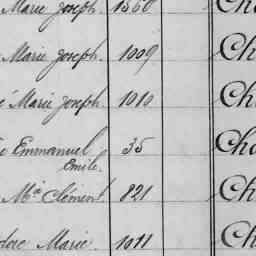 Marie Joseph. 1360 Ch
Marie Joseph. 1009 Ch
Marie Joseph 1010 Ch
Emmanuel 35 Ch
Emile.
Mie Clément 821 Ch
Marie 1011 Ch